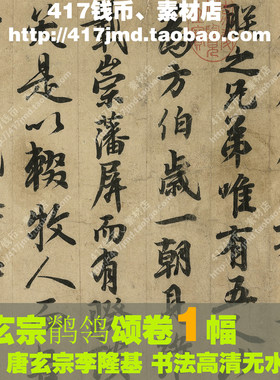 417钱币、素材店
http://417jmd.taobao.com
朕之兄弟唯有五
為方伯歲一朝見
載崇藩屏而有
是以輟牧人
玄宗鹡鸰颂卷1幅
唐玄宗李隆基 书法高清无水